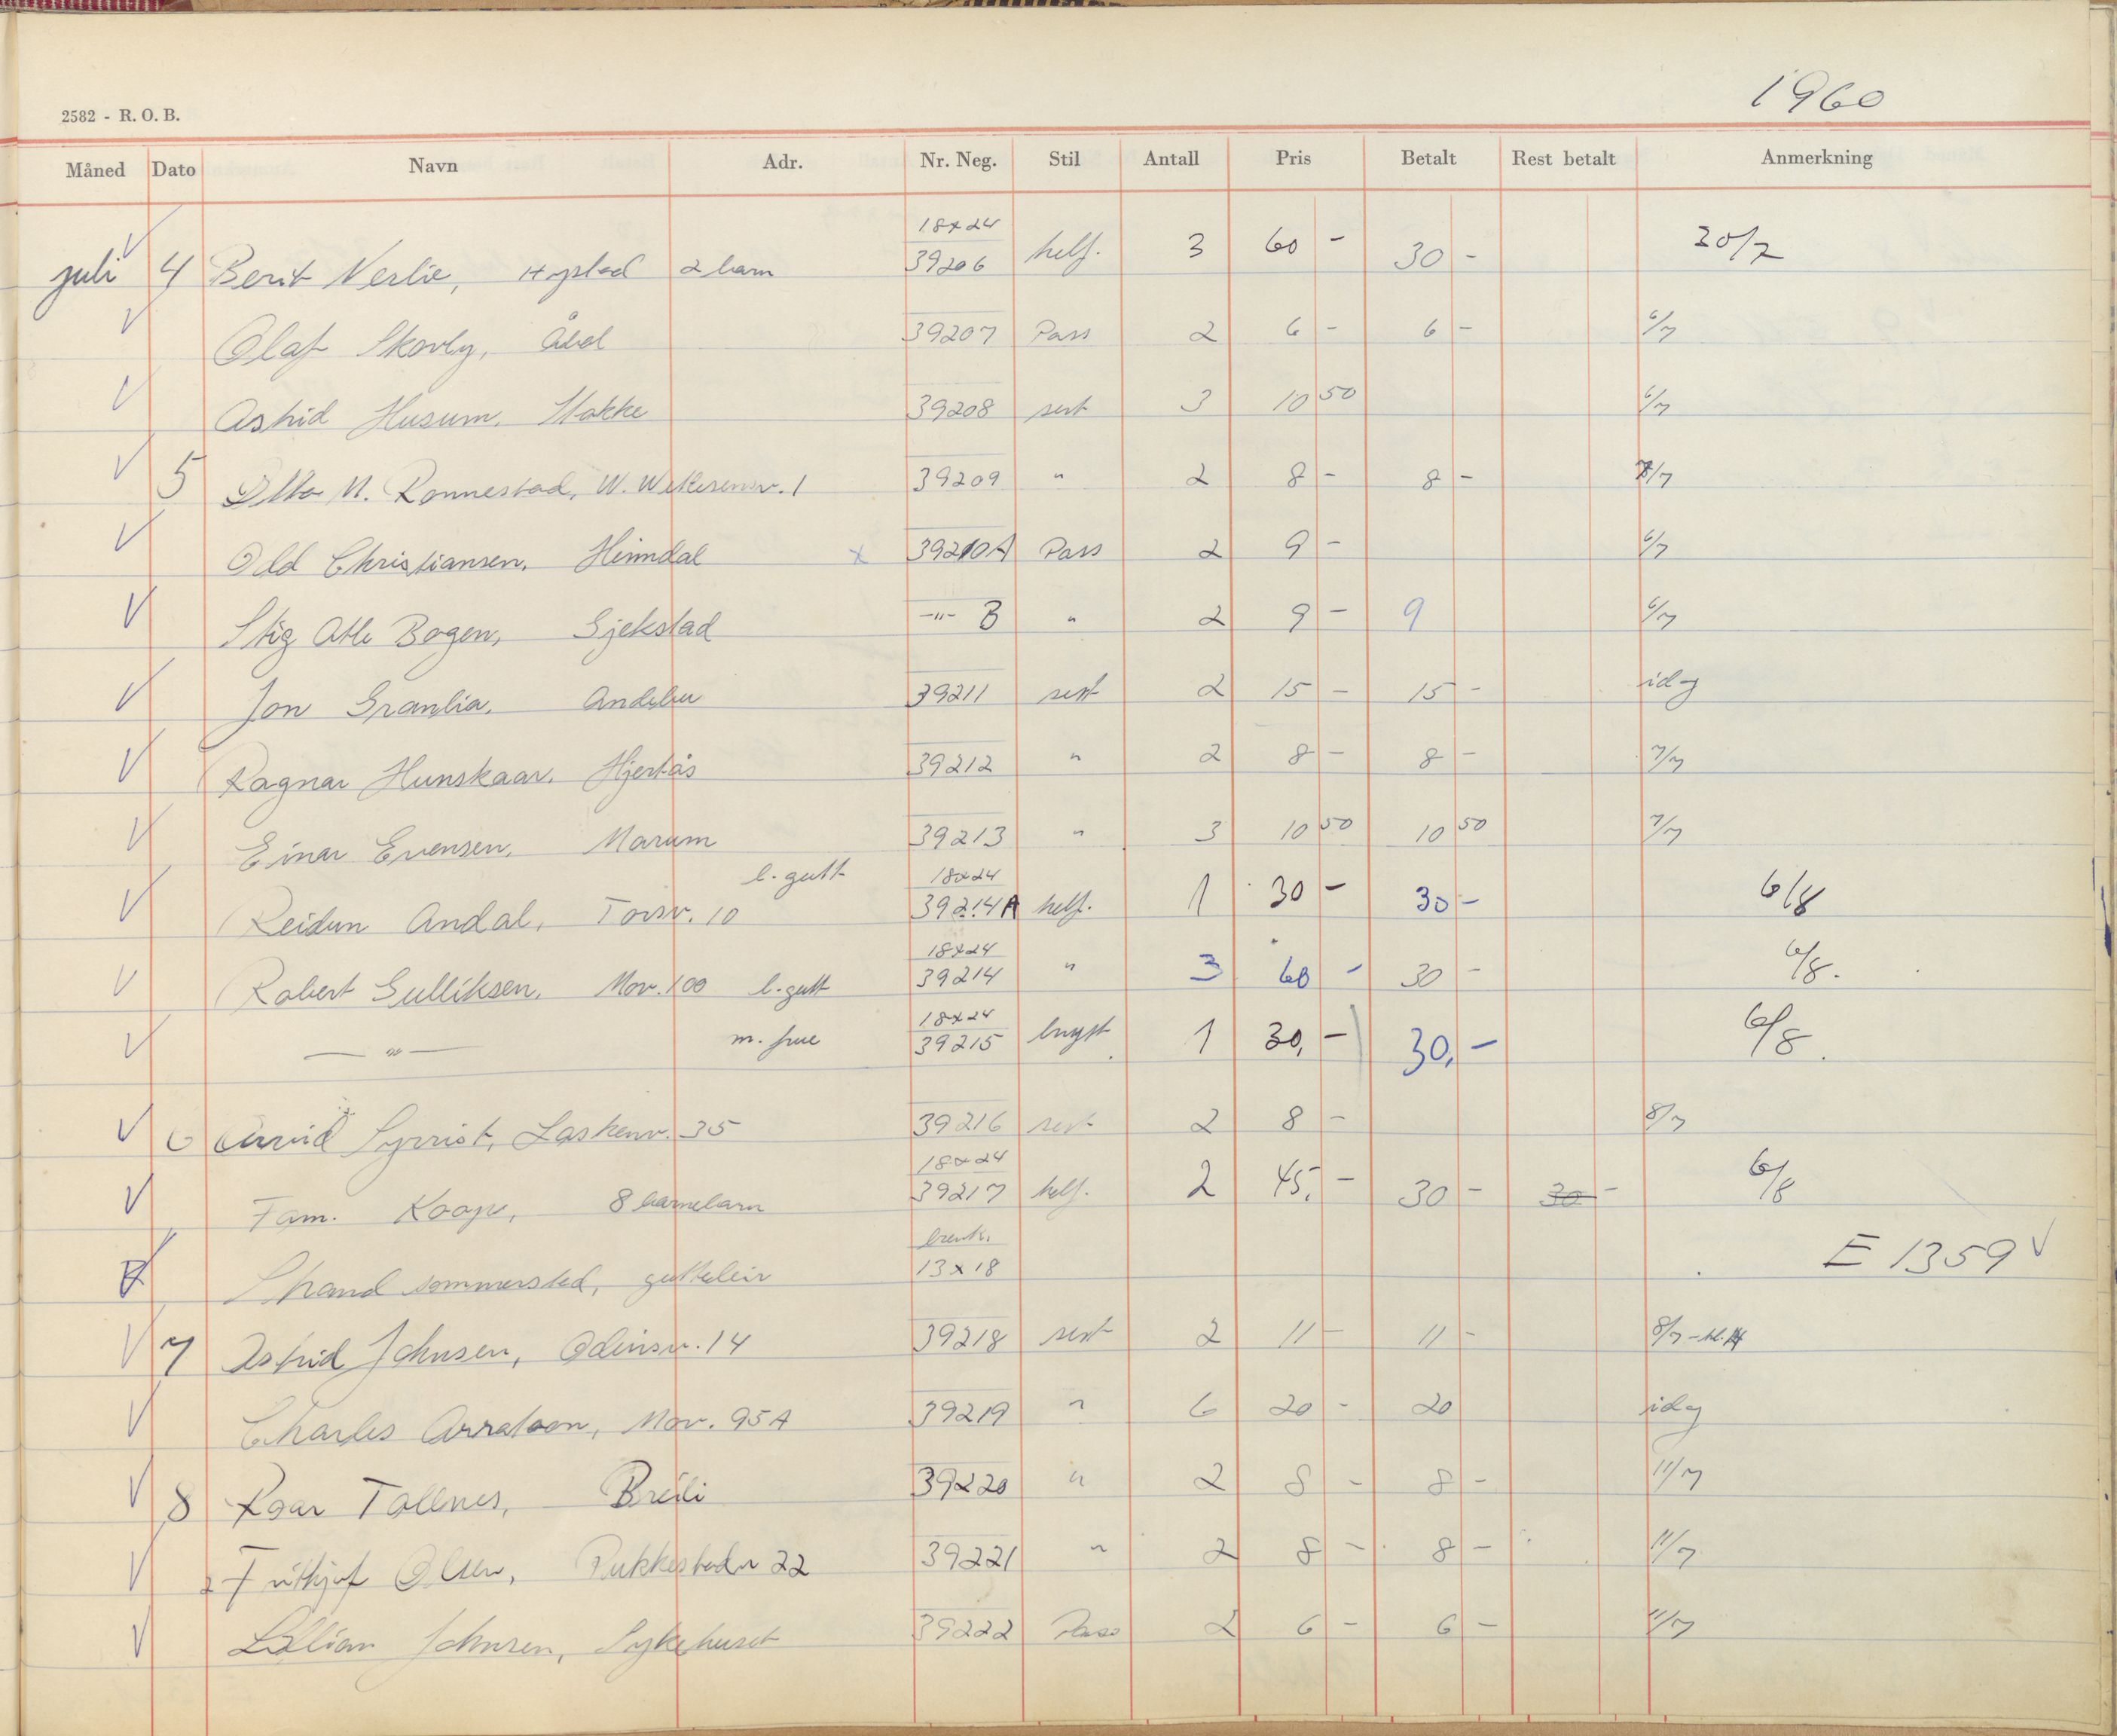 1960
2582 - R. O. B.
Måned Dato Navn Adr. Nr. Neg. Stil Antall Pris Betalt Rest betalt Anmerkning
juli 4 Berit Nerlie, 2 barn 18x24 39206 helf. 3 60 - 30 - 20/7
Olaf Skovly, 39207 Pass 2 6 - 6 - 6/7
Astrid Husum, Stokke 39208 sert 3 10 50 6/7
5 M. Ronnestad, 1 39209 " 2 8 - 8 - 8/7
Odd Christiansen, Himdal x 39210A Pass 2 9 - 6/7
Stig Atle Bogen, Gjekstad -"- B " 2 9 - 9 6/7
Jon Granlia, Andebu 39211 sert 2 15 - 15 - idag
Ragnar Hunskaar, Hjertås 39212 " 2 8 - 8 - 7/7
Einar Evensen, Marum 39213 " 3 10 50 10 50 7/7
Reidun Andal, Torsv. 10 l. gutt 18x24 39214A helf. 1 30 - 30 - 6/8
Robert Gulliksen, Mov. 100 l. gutt 18x24 39214 " 3 60 - 30 - 6/8.
— " — m. frue 18x24 39215 bryst 1 30, - 30, - 6/8.
6 Arvid Syrrist, 35 39216 sert 2 8 - 8/7
Fam. Koop, 8 barnebarn 18x24 39217 helf. 2 45, - 30 - 30 - 6/8
Strand sommersted, gutteleir 13x18 E 1359
7 Astrid Johnsen, Odinsv. 14 39218 sert 2 11 - 11 - 8/7 - kl. 14
Charles Arratoon, Mov. 95A 39219 " 6 20 - 20 idag
8 Roar Tollnes, Breili 39220 " 2 8 - 8 - 11/7
Frithjof Olsen, Pukkestadv 22 39221 " 2 8 - 8 - 11/7
Lillian Johnsen, Sykehuset 39222 Pass 2 6 - 6 - 11/7